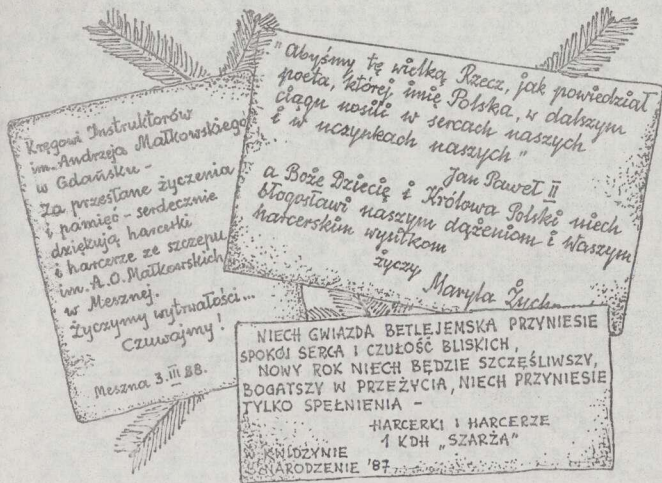 Kręgowi Instruktorów
im. Andrzeja Małkowskiego
w Gdańsku -
Za przesłane życzenia
i pamięć - serdecznie
dziękują harcerki
i harcerze ze szczepu
im. A.O. Małkowskich
w Mesznej.
Życzymy wytrwałości...
Czuwajmy!
Meszna 3.III.88.
"Abyśmy tę wielką Rzecz, jak powiedział
poeta, której imię Polska, w dalszym
ciągu nosili w sercach naszych
i w uczynkach naszych"
Jan Paweł II
a Boże Dziecię i Królowa Polski niech
błogosławi naszym dążeniom i Waszym
harcerskim wysiłkom
życzy
Maryla
NIECH GWIAZDA BETLEJEMSKA PRZYNIESIE
SPOKÓJ SERCA I CZUŁOŚĆ BLISKICH,
NOWY ROK NIECH BĘDZIE SZCZĘŚLIWSZY,
BOGATSZY W PRZEŻYCIA, NIECH PRZYNIESIE
TYLKO SPEŁNIENIA -
HARCERKI I HARCERZE
1 KDH „SZARŻA"
W KWIDZYNIE
NARODZENIE '87